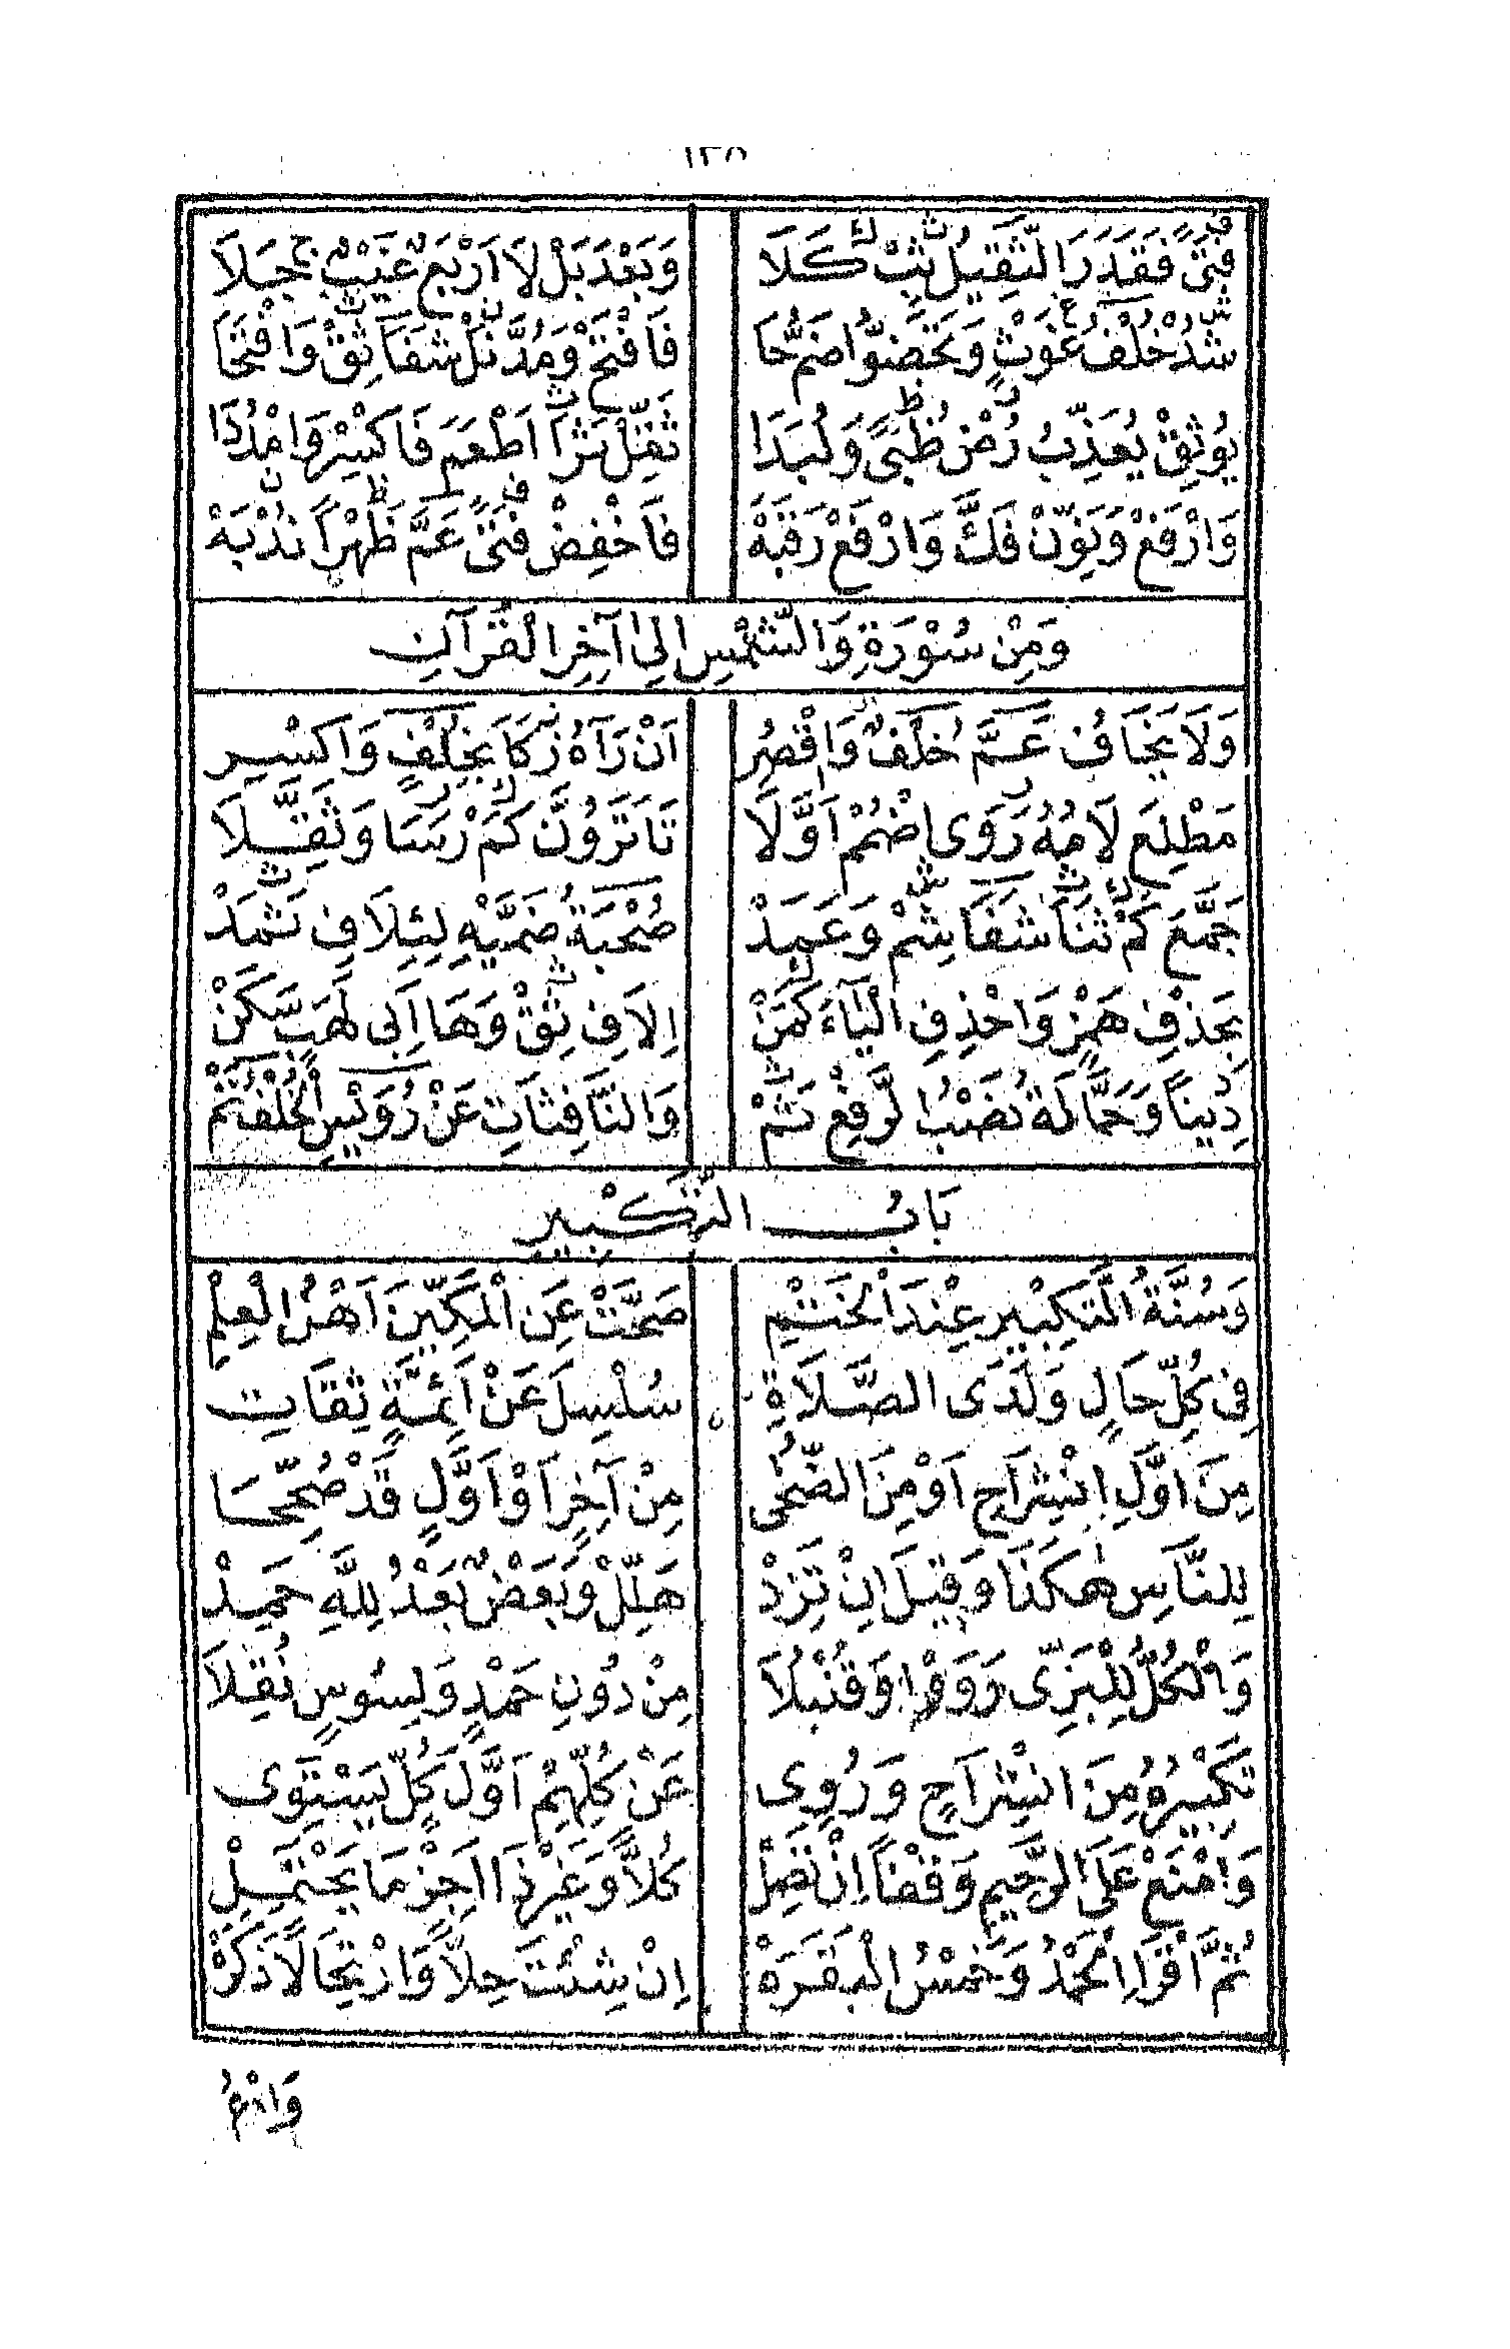 ١٣٨
فَتًى فَقَدَّرَ الثَّقِيلُ ثِبْ كَلَا وَبَعْدَ بَلْ لَا اَرْبَعٌ غَيْبٌ حَلَا
شُذْ خُلْفُ غَوْثٍ وَتَحُضُّوا ضُمَّ حَا فَافْتَحْ وَمُدَّ نَلْ شَفَا ثِقْ وَافْتَحَا
يُوثِقْ يُعَذِّبُ رُضْ ظُبًى وَلُبَدَا ثَقِّلْ ثَرَا اَطْعَمَ فَاكْسِرْ وَامْدُدَا
وَارْفَعْ وَنَوِّنْ فَكُّ وَارْفَعْ رَقَبَهْ فَاخْفِضْ فَتًى عَمَّ ظَهْرًا نُدْبَهْ
وَمِنْ سُورَةِ وَالشَّمْسِ اِلىٰ آخِرِ الْقُرْآنِ
وَلَا يَخَافُ عَمَّ خُلْفٌ وَاقْصُرِ اَنْ رَآهُ زَكَا بِخُلْفٍ وَاكْسِرِ
مَطْلِعِ لَامُهُ رَوَى اضْمُمْ اَوَّلَا تَا تَرَوُنَّ كَمْ رَسَا وَثَقِّلَا
جَمَّعَ كَمْ ثَنَا شَفَا شِمْ وَعَمَدْ صُحْبَةُ ضَمَّيْهِ لِئِلَافِ ثَمَدْ
بِحَذْفِ هَمْزٍ وَاحْذِفِ الْيَاءَ كَمَنْ اِلَافِ ثِقْ وَهَا اَبِى لَهَبٍ سَكَنْ
دِينًا وَحَمَّالَةُ نَصْبُ الرَّفْعِ ثَمْ وَالنَّافِثَاتِ عَنْ رُوَيْسِ الْخُلْفُ تَمْ
بَابُ التَّكْبِيرِ
وَسُنَّةُ التَّكْبِيرِ عِنْدَ الْخَتْمِ صَحَّتْ عَنِ الْمَكِّينَ اَهْلِ الْعِلْمِ
فِى كُلِّ حَالٍ وَلَدَى الصَّلَاةِ سُلْسِلَ عَنْ اَئِمَّةٍ ثِقَاتِ
مِنْ اَوَّلِ انْشِرَاحٍ اَوْ مِنَ الضُّحٰى مِنْ آخِرٍ اَوْ اَوَّلٍ قَدْ صُحِّحَا
لِلنَّاسِ هٰكَذَا وَقِيلَ اِنْ تَزِدْ هَلِّلْ وَبَعْضٌ بَعْدُ لِلّٰهِ حَمِدْ
وَالْكُلُّ لِلْبَزِّى رَوَوْا وَقُنْبُلَا مِنْ دُونِ حَمْدٍ وَلِسُوسٍ نُقِلَا
تَكْبِيرُهُ مِنَ انْشِرَاحٍ وَرُوِى عَنْ كُلِّهِمْ اَوَّلَ كُلٍّ يَسْتَوِى
وَامْنَعْ عَلَى الرَّحِيمِ وَقْفًا اِنْ تَصِلْ كُلًّا وَغَيْرَ ذَا اَجِزْ مَا يَحْتَمِلْ
ثُمَّ اقْرَأِ الْحَمْدُ وَخَمْسَ الْبَقَرَهْ اِنْ شِئْتَ حِلًّا وَارْتِحَالًا ذَكَرَهْ